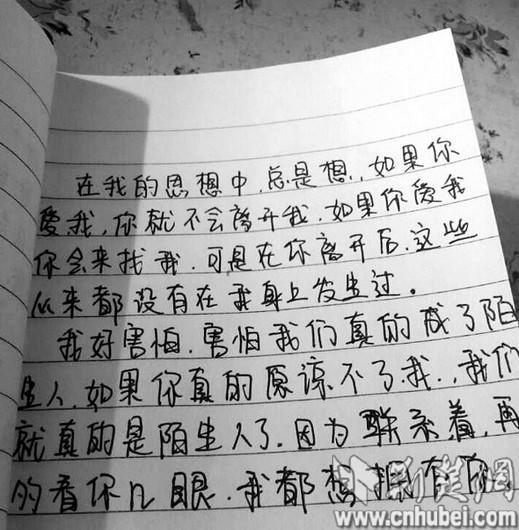 在我的思想中,总是想,如果你
爱我,你就不会离开我,如果你爱我
你会来找我,可是在你离开后,这些
从来都没有在我身上发生过。
我好害怕,害怕我们真的成了陌
生人,如果你真的原谅不了我,我们
就真的是陌生人了,因为联系着,再
的看你几眼,我都想拥有你,
荆楚网
www.cnhubei.com